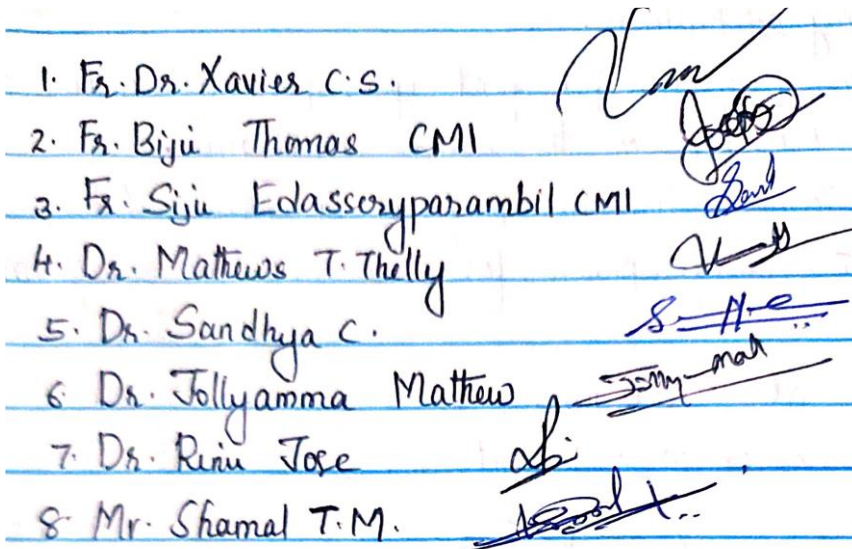 1. Fr. Dr. Xavier C.S.
2. Fr. Biju Thomas CMI
3. Fr. Siju Edasseryparambil CMI
4. Dr. Mathews T. Thelly
5. Dr. Sandhya C.
6. Dr. Jollyamma Mathew
7. Dr. Rinu Jose
8. Mr. Shamal T.M.